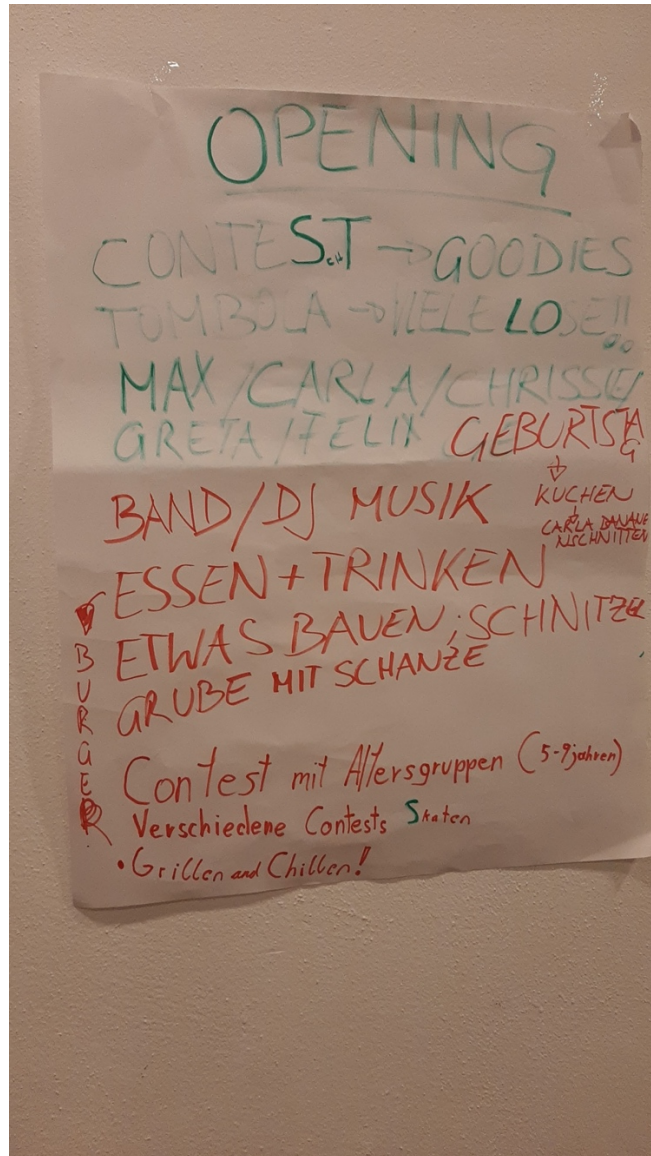 OPENING
CONTEST → GOODIES
TOMBOLA → VIELE LOSE!!
MAX/CARLA/CHRISSIE/
GRETA/FELIX GEBURTSTAG
KUCHEN
CARLA BANANE
NSCHNITTEN
BAND/DJ MUSIK
ESSEN + TRINKEN
BURGER
ETWAS BAUEN; SCHNITZEL
GRUBE MIT SCHANZE
Contest mit Altersgruppen (5-9jahren)
Verschiedene Contests Skaten
• Grillen and Chillen!